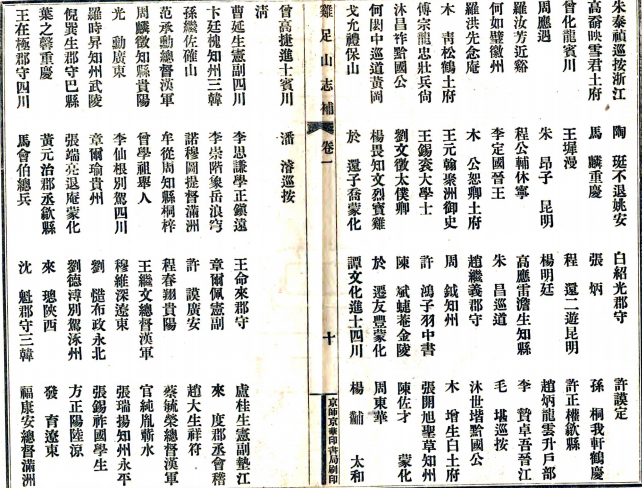 朱泰禎巡按浙江　陶　珽不退姚安　白紹光郡守　許謨定
高奣映雪君土府　馬　麟重慶　張　炳　孫　桐我軒鶴慶
曾化龍賓川　王墀漫　程　還二遊昆明　許正權歙縣
周應遇　朱　昂子　昆明　楊明廷　趙炳龍雲升戶部
羅汝芳近谿　程公輔休寧　高應雷澹生知縣　李　贄卓吾晉江
何如璧徽州　李定國晉王　朱　昌巡道　毛　堪巡按
羅洪先念庵　木　公恕卿土府　趙繼義郡守　沐世堦黔國公
木　青松鶴土府　王元翰聚洲御史　周　鉞知州　木　增生白土府
傅宗龍忠壯兵尚　王錫袞大學士　許　鴻子羽中書　張開旭聖草知州
沐昌祚黔國公　劉文徵太僕卿　陳　斌　菴金陵　陳佐才　蒙化
何閎中巡道黃岡　楊畏知文烈寶雞　於　還友豐蒙化　周東華
戈允禮保山　於　還子喬蒙化　譚文化進士四川　楊　黼　太和
雞足山志補　卷一　十　京師京華印書局刷印
曾高捷進士賓川
清　潘　濬巡按
曹延生憲副四川　李思謙學正鎮遠　王命來郡守　盧桂生憲副墊江
卞廷槐知州三韓　李崇階象岳浪穹　章爾佩憲副　來　度郡丞會稽
孫繼佐確山　諾穆圖提督滿洲　許　謨廣安　趙大生祥符
范承勳總督漢軍　牟從周知縣桐梓　程春翔貴陽　蔡毓榮總督漢軍
周麟徵知縣貴陽　曾學祖舉人　王繼文總督漢軍　官純胤蘄水
光　動廣東　李仙根別駕四川　穆維深遼東　張瑞揚知州永平
羅時昇知州武陵　章爾瑜貴州　劉　布政永北　張錫祚國學生
倪巽生郡守巴縣　張端亮退庵蒙化　劉德溥別駕涿州　方正陽陸涼
葉之馨重慶　黃元治郡丞歙縣　來　璁陝西　發　育遼東
王在極郡守四川　馬會伯總兵　沈　魁郡守三韓　福康安總督滿洲